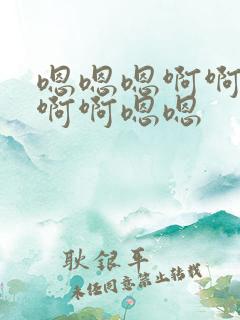 嗯嗯嗯啊啊
啊啊嗯嗯
耿银平
未经同意禁止转载